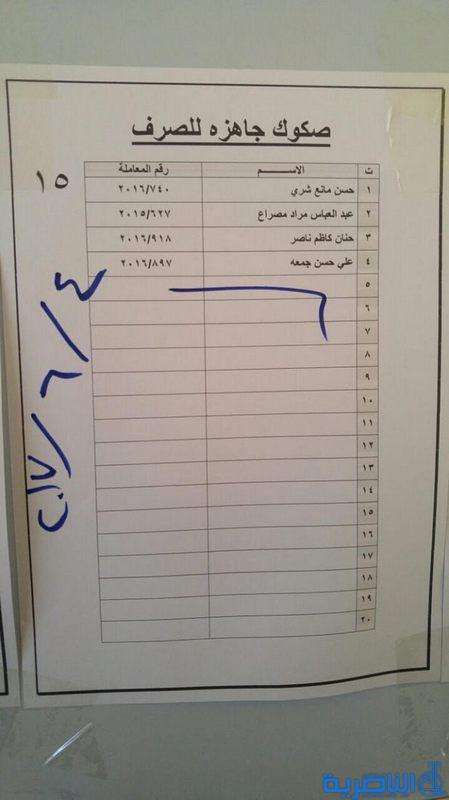 صكوك جاهزه للصرف
١٥
ت الاســـم رقم المعاملة
١ حسن مانع شري ٢٠١٦/٧٤٠
٢ عبد العباس مراد مصراع ٢٠١٥/٦٢٧
٣ حنان كاظم ناصر ٢٠١٦/٩١٨
٤ علي حسن جمعه ٢٠١٦/٨٩٧
٥
٦
٧
٨
٩
١٠
١١
١٢
١٣
١٤
١٥
١٦
١٧
١٨
١٩
٢٠
٤/٦/٢٠١٧
الناصرية